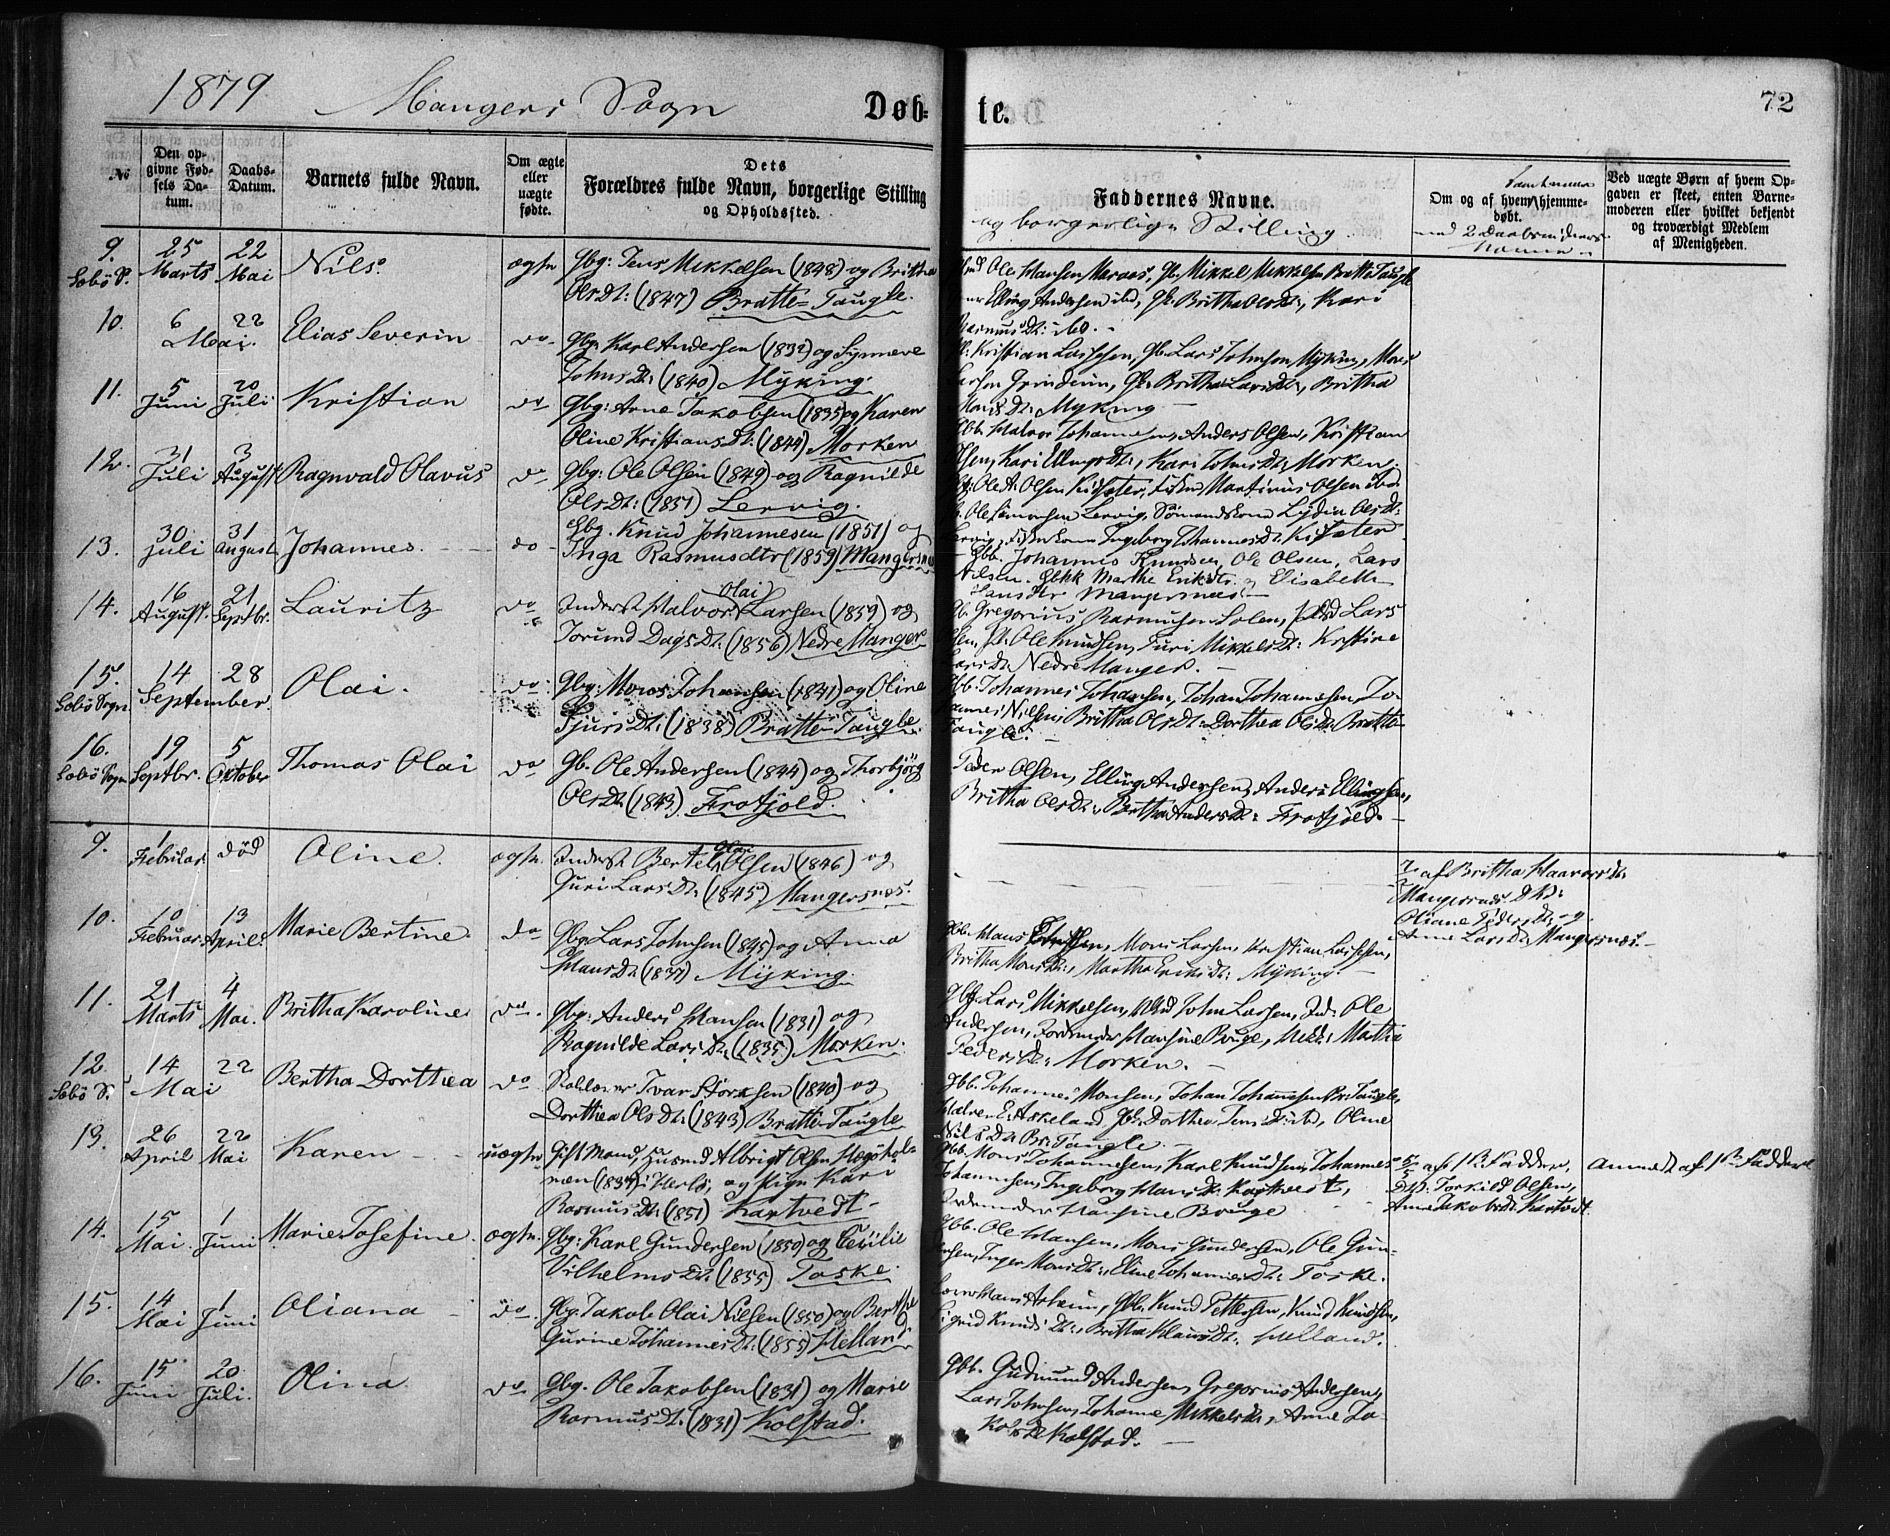 1879 Mangers Sogn Døb=te. 72
No
Den opgivne Fødsels Datum.
Daabs-Datum.
Barnets fulde Navn.
Om ægte eller uægte fødte.
Dets Forældres fulde Navn, borgerlige Stilling og Opholdssted.
Faddernes Navne.
og borgerlige Stilling
Om og af hvem hjemmedøbt.
med 2 Daabsvidners Navne
Ved uægte Børn af hvem Opgaven er skeet, enten Barnemoderen eller hvilket bekjendt og troværdigt Medlem af Menigheden.
9. Sæbö S. 25 Marts 22 Mai Nils. ægte
Gbg: Jens Mikkelsen (1848) og Britha
Olsdt: (1847) Bratte=Taugle.
Ole Hansen Meraas, Gb. Mikkel Mikkelsen Bratte Taugle
Elling Andersen ibd, Gk. Britha Olsdt:, Kari
Rasmusdt: ibd. -
10. 6 22 Mai. Elias Severin do
Gbg. Karl Andersen (1832) og Synneve
Johnsdt: (1840) Myking.
Kristian Larssen, Gb. Lars Johnsen Myking, Mons
Larsen Grindeim, Gk. Britha Larsdt:, Britha
Monsdt: Myking -
11. 5 Juni 20 Juli Kristian do
Gbg: Arne Jakobsen (1835) og Karen
Oline Kristiansdt: (1844) Morken
Gbb. Halvor Johannesen, Anders Olsen, Kristian
Olsen, Kari Ellingsdt:, Kari Johnsdt: Morken.
12. 31 Juli 3 August Ragnvald Olavus do
Gbg: Ole Olsen (1849) og Ragnilde
Olsdt: (1851) Lervig.
Ole A. Olsen Kidsæter, Fisker Martinus Olsen ibd
Ole Simonsen Lervig, Sömandskone Lydia Olsdt:
Lervig, Fiskerkone Ingeborg Johannesdt: Kidsæter
13. 30 Juli 31 August Johannes. do
Gbg. Knud Johannesen (1851) og
Inga Rasmusdtr (1859) Mangersnes
Gbb. Johannes Knudsen, Ole Olsen, Lars
Nilsen. Gbkk Marthe Eriksdtr. og Elisabeth
Hansdtr Mangersnes -
14. 16 August. 21 Septbr. Lauritz do
Inderst Halvor Olai Larsen (1859) og
Jorund Dagsdt: (1856) Nedre Manger
Gb. Gregorius Rasmussen Solen, Lars
Ole Knudsen, Turi Mikkelsdt: Kristine
Larsdt: Nedre Manger. -
15. Sæbö Sogn 14 28 September Olai. do
Gbg: Mons Johansen (1841) og Oline
Sjursdt: (1838) Bratte-Taugle.
Gbb. Johannes Johansen, Johan Johannessen, Jo-
hannes Nilsen, Britha Olsdt: Dorthea Olsdt: Bratte
Taugle. -
16. Sæbö Sogn 19 Septbr. 5 Oktober Thomas Olai do
Gb. Ole Andersen (1844) og Thorbjörg
Olsdt: (1843) Frotjold.
Peder Olsen, Elling Andersen, Anders Ellingsen,
Britha Olsdt:, Bertha Andersdt: Frotjold -
9. 1 Februar død Oline. ægte.
Inderst Bertel Olai Olsen (1846) og
Guri Larsdt: (1845) Mangersnes.
af Britha Haavorsdt:
Mangersnes
Oliane Pedersdt: og
Anne Larsdt: Mangersnes. -
10. 10 Februar 13 April. Marie Bertine. do
Gbg: Lars Johnsen (1845) og Anna
Hansdt: (1837) Myking.
Gbb. Hans Mons Larsen, Kristian Larssen,
Britha Monsdt:, Martha Eriksdt: Myking. -
11. 21 Marts 4 Mai. Britha Karoline do.
Gbg: Anders Hansen (1831) og
Ragnilde Larsdt: (1835) Morken.
Gbf. Lars Mikkelsen, John Larsen, Ind. Ole
Andersen, Jordemoder Hansine Bouge, Martha
Pedersdt: Morken. -
12 Sæbö S. 14 22 Mai Bertha Dorthea do
Skolelærer Ivar Storksen (1840) og
Dorthea Olsdt: (1843) Bratte-Taugle
Gbb. Johannes Monsen, Johan Johannesen Br. Taugle,
Halvor E. Askeland, Gk. Dorthea Jensdt: ibd, Oline
Nilsdt: Br. Taugle. -
13. 26 April 22 Mai Karen uægte
Gift Mand, Husmd Albrigt Olsen Høgöhol-
men (1834) i Herlö, og Pige Kari
Rasmusdt: (1851) Kartvedt -
Gbb. Mons Johannesen, Karl Knudsen, Johannes
Johannesen, Ingeborg Hansdt: Kartvedt,
Jordemoder Hansine Bouge
5/5 af 1ste Fadder,
Torkild Olsen,
Ane Jakobsdt: Kartvedt.
anmeldt af 1ste Fadder
14. 15 Mai 1 Juni Marie Josefine. ægte.
Gbg: Karl Gundersen (1850) og Cecilie
Vilhelmsdt: (1855) Toske.
Gbb. Ole Hansen, Mons Gundersen, Ole Gun-
dersen, Inger Monsdt:, Eline Johannesdt: Toske.
15. 14 Mai 1 Juni Oliana do
Gbg: Jakob Olai Nilsen (1850) og Berthe
Gurine Johannesdt: (1855) Helland
Gbb. Knud Pettersen, Knud Knudsen,
Sigrid Knudsdt:, Britha Klausdt: Helland.
16. 15 Juni 20 Juli. Olina do
Gbg. Ole Jakobsen (1831) og Marie
Rasmusdt: (1831) Kolstad.
Gbb. Gudmund Andersen, Gregorius Andersen,
Lars Johnsen, Johanne Mikkelsdt:, Anne Ja-
kobsdt Kolstad. -